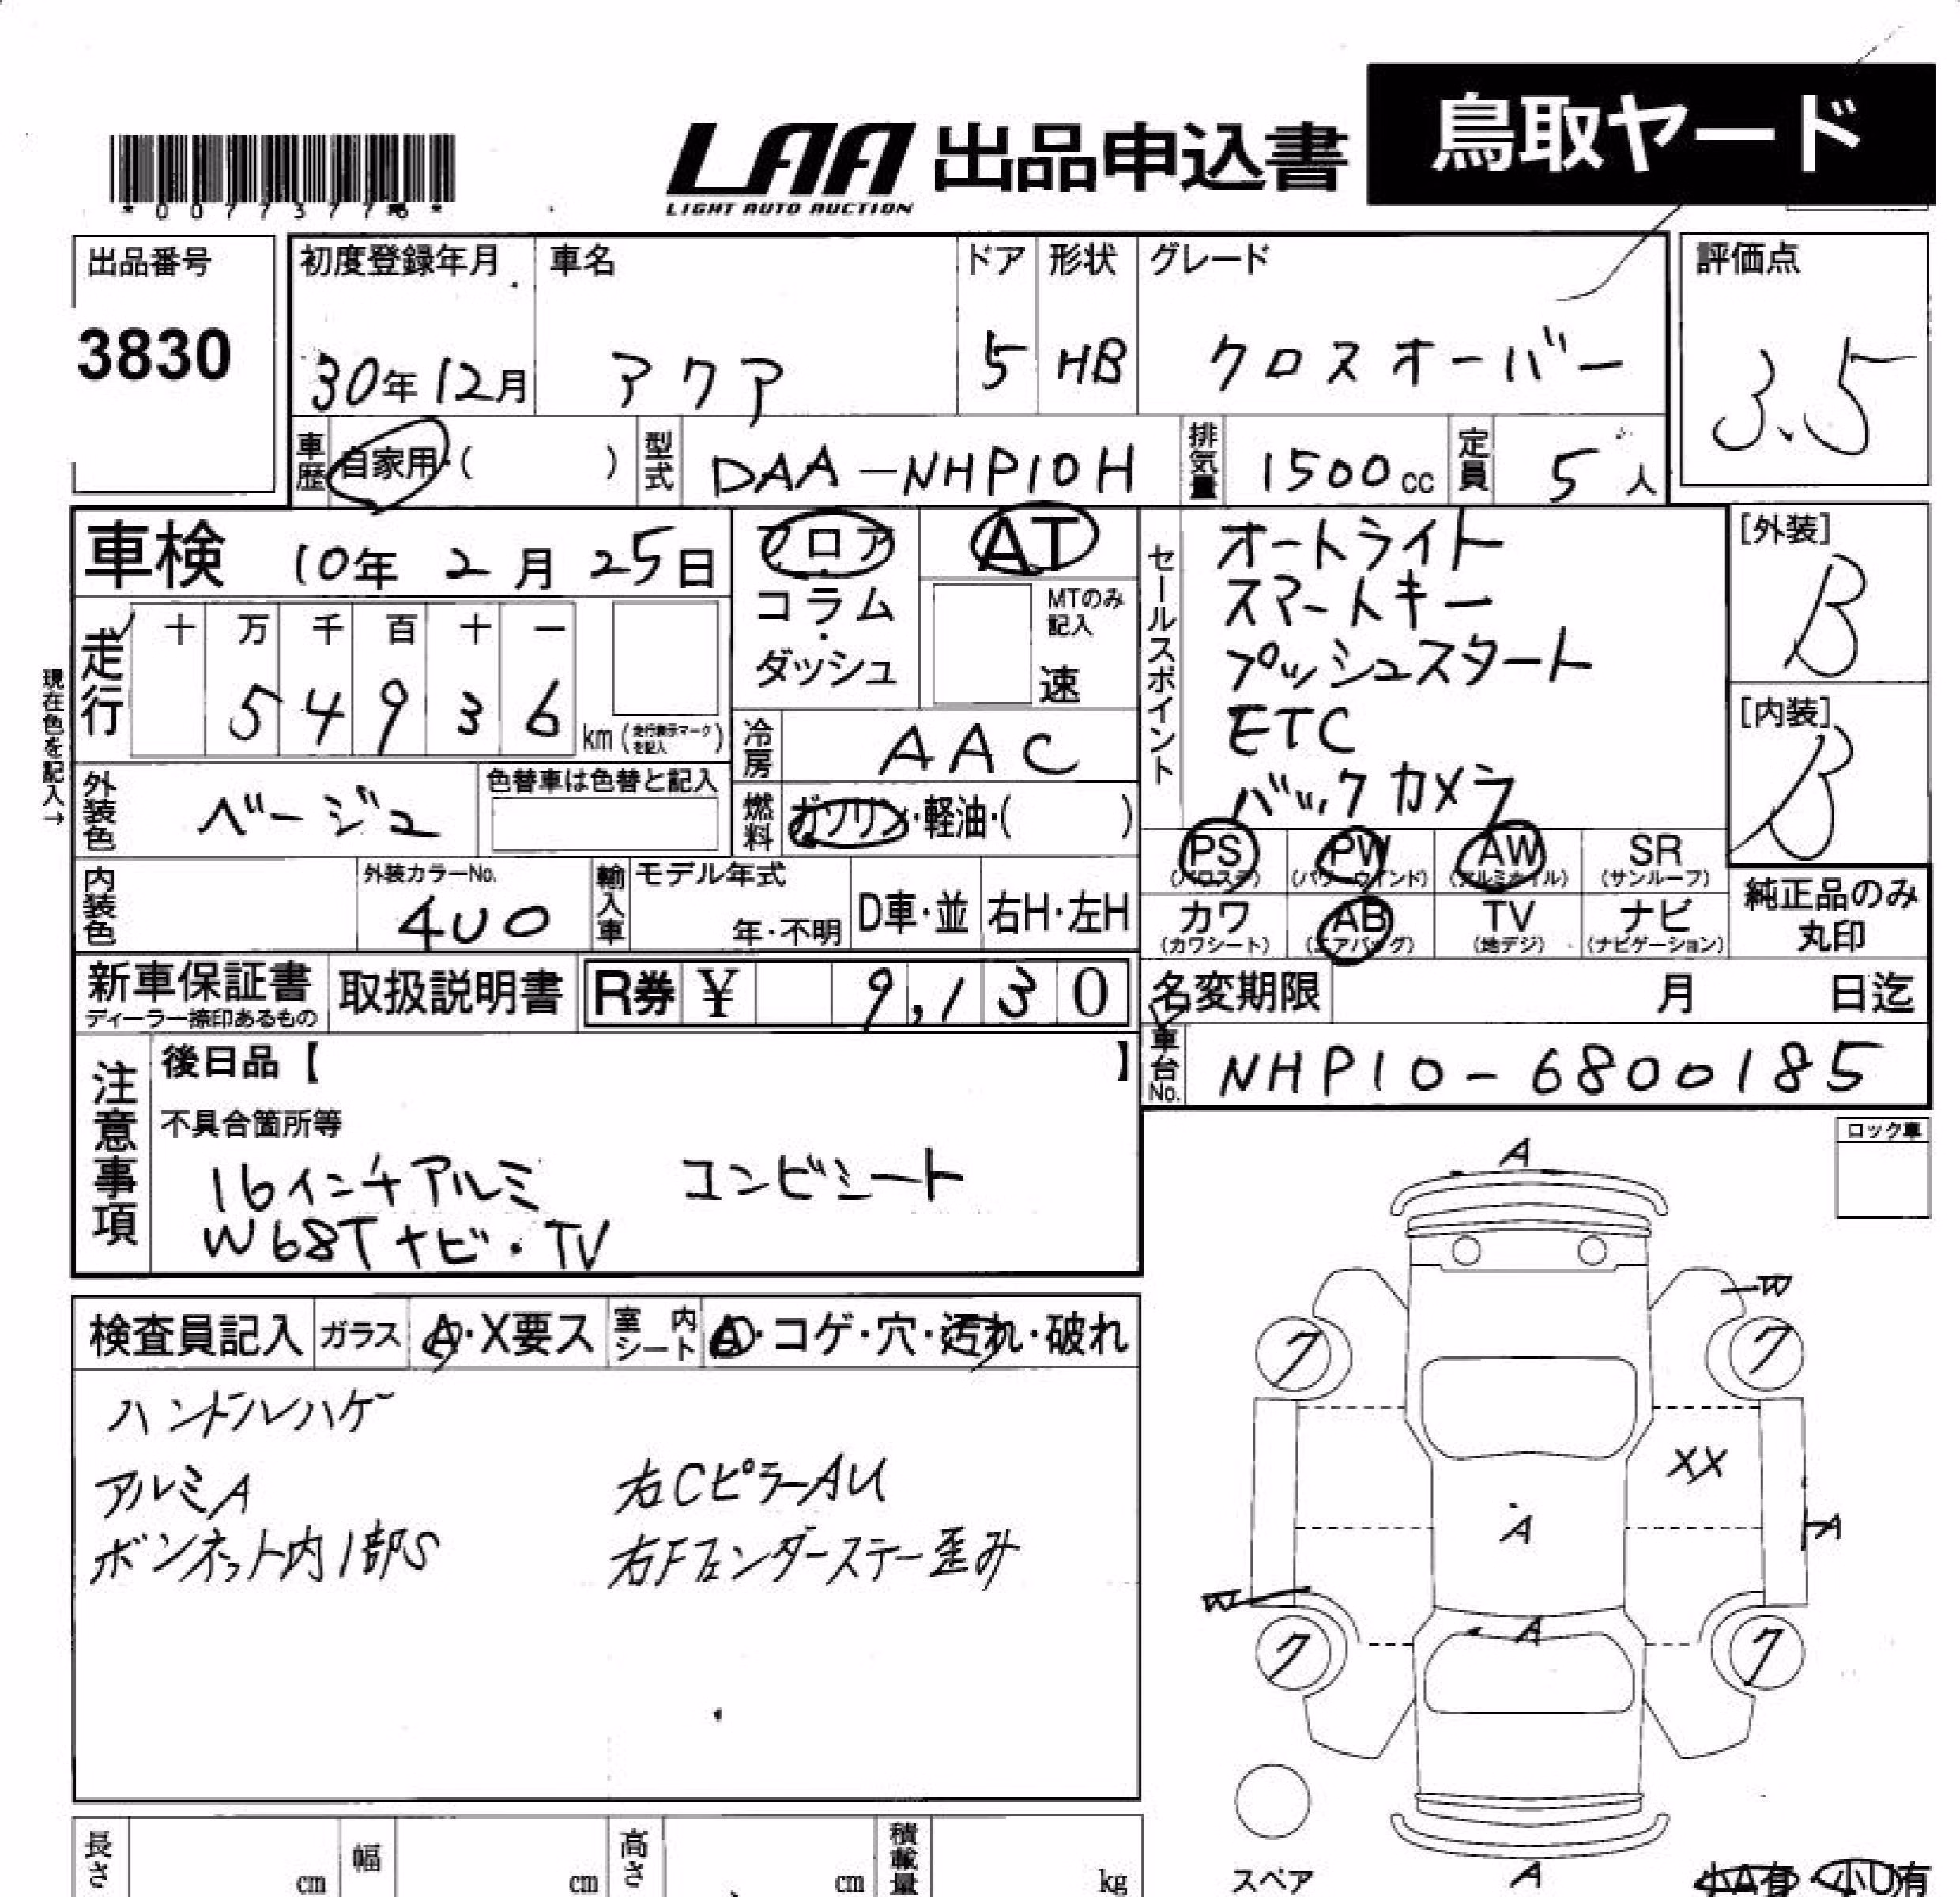 鳥取ヤード
LAA 出品申込書
LIGHT AUTO AUCTION
出品番号
3830
初度登録年月
30年12月
車名
アクア
ドア
5
形状
HB
グレード
クロスオーバー
評価点
3.5
車歴 自家用・( )
型式 DAA-NHP10H
排気量 1500cc
定員 5人
車検 10年 2月 25日
フロア・コラム・ダッシュ
AT
MTのみ記入
速
走行 十 万 千 百 十 一
5 4 9 3 6 km (走行表示マークを記入)
現在色を記入→
冷房 AAC
外装色 ベージュ
色替車は色替と記入
燃料 ガソリン・軽油・( )
セールスポイント
オートライト
スマートキー
プッシュスタート
ETC
バックカメラ
[外装]
B
[内装]
B
内装色
外装カラーNo.
4U0
輸入車
モデル年式
年・不明
D車・並
右H・左H
PS (パワステ)
PW (パワーウインド)
AW (アルミホイル)
SR (サンルーフ)
カワ (カワシート)
AB (エアバッグ)
TV (地デジ)
ナビ (ナビゲーション)
純正品のみ丸印
新車保証書
ディーラー捺印あるもの
取扱説明書
R券 ¥ 9,130
名変期限 月 日迄
車台No. NHP10-6800185
注意事項
後日品【 】
不具合箇所等
16インチアルミ コンビシート
W68Tナビ・TV
ロック車
検査員記入 ガラス A・X要ス 室内シート A・コゲ・穴・汚れ・破れ
ハンドルハゲ
アルミA 右CピラーAU
ボンネット内1部S 右Fフェンダーステー歪み
A
W
ク ク
XX
A
A
W
A
ク ク
スペア
A
小A有・小U有
長さ cm
幅 cm
高さ cm
積載量 kg